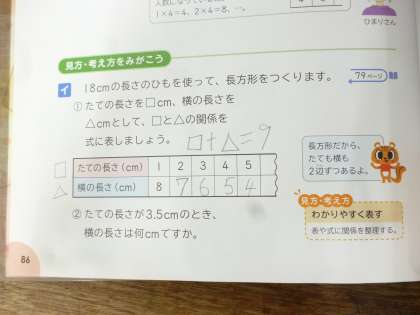 1×4=4、2×4=8、…。
ひまりさん
見方・考え方をみがこう
イ 18cmの長さのひもを使って、長方形をつくります。
79ページ
① たての長さを□cm、横の長さを
△cmとして、□と△の関係を
式に表しましょう。 □+△=9
□ たての長さ(cm) 1 2 3 4 5
△ 横の長さ(cm) 8 7 6 5 4
長方形だから、
たても横も
2辺ずつあるよ。
② たての長さが3.5cmのとき、
横の長さは何cmですか。
見方・考え方
わかりやすく表す
表や式に関係を整理する。
86